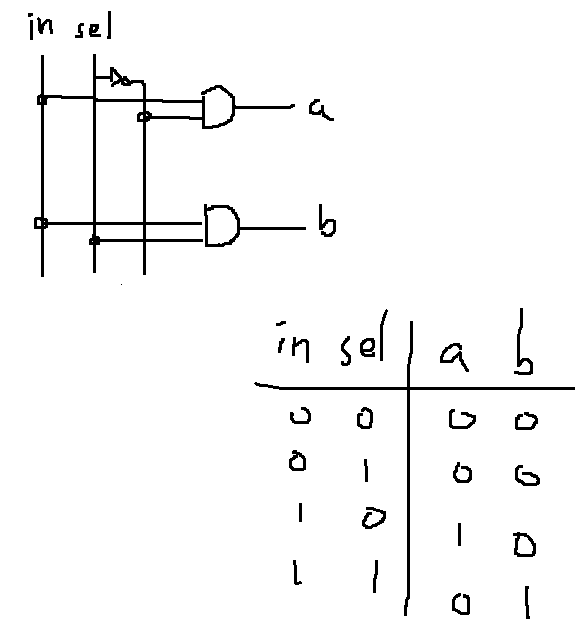 in sel
a
b
in sel a b
0 0 0 0
0 1 0 0
1 0 1 0
1 1 0 1